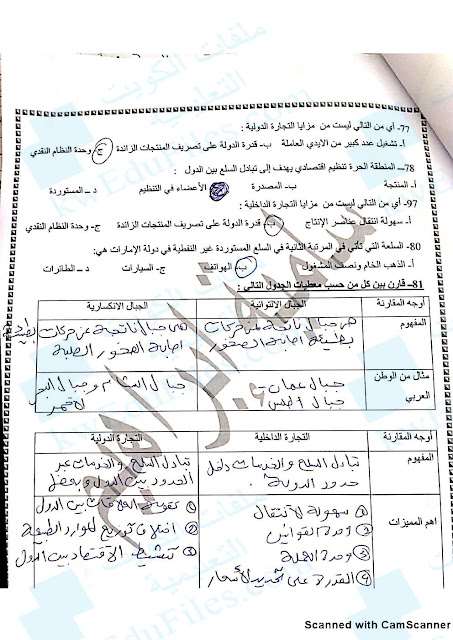 77- أي من التالي ليست من مزايا التجارة الدولية :
أ- تشغيل عدد كبير من الايدي العاملة ب- قدرة الدولة على تصريف المنتجات الزائدة ج- وحدة النظام النقدي
78ــ المنطقة الحرة تنظيم اقتصادي يهدف إلى تبادل السلع بين الدول :
أ- المنتجة ب- المصدرة الأعضاء في التنظيم د – المستوردة
97- أي من التالي ليست من مزايا التجارة الداخلية :
أ- سهولة انتقال عناصر الإنتاج ب- قدرة الدولة على تصريف المنتجات الزائدة ج- وحدة النظام النقدي
80- السلعة التي تأتي في المرتبة الثانية في السلع المستوردة غير النفطية في دولة الإمارات هي:
أ- الذهب الخام ونصف المشغول ب- الهواتف ج- السيارات د – الطائرات
81- قارن بين كل من حسب معطيات الجدول التالي :
أوجه المقارنة الجبال الالتوائية الجبال الانكسارية
المفهوم هي جبال ناتجة عن حركات هي جبال ناتجة عن حركات بطيئة
بطيئة اصابة الصخور اصابة الصخور الصلبة
مثال من الوطن جبال عمان جبال الشام وجبال البحر
العربي جبال أطلس الاحمر
أوجه المقارنة التجارة الداخلية التجارة الدولية
المفهوم تبادل السلع والخدمات داخل تبادل السلع والخدمات عبر
حدود الدولة . الحدود بين الدول وبعض
اهم المميزات ① سهولة الانتقال العلاقات بين الدول
② وحدة القوانين توزيع الموارد الطبيعية
③ وحدة العملة تنشيط الاقتصاد بين الدول
④ القدرة على تحديد الأسعار
ملفات الكويت
التعليمية
EduFiles
Scanned with CamScanner